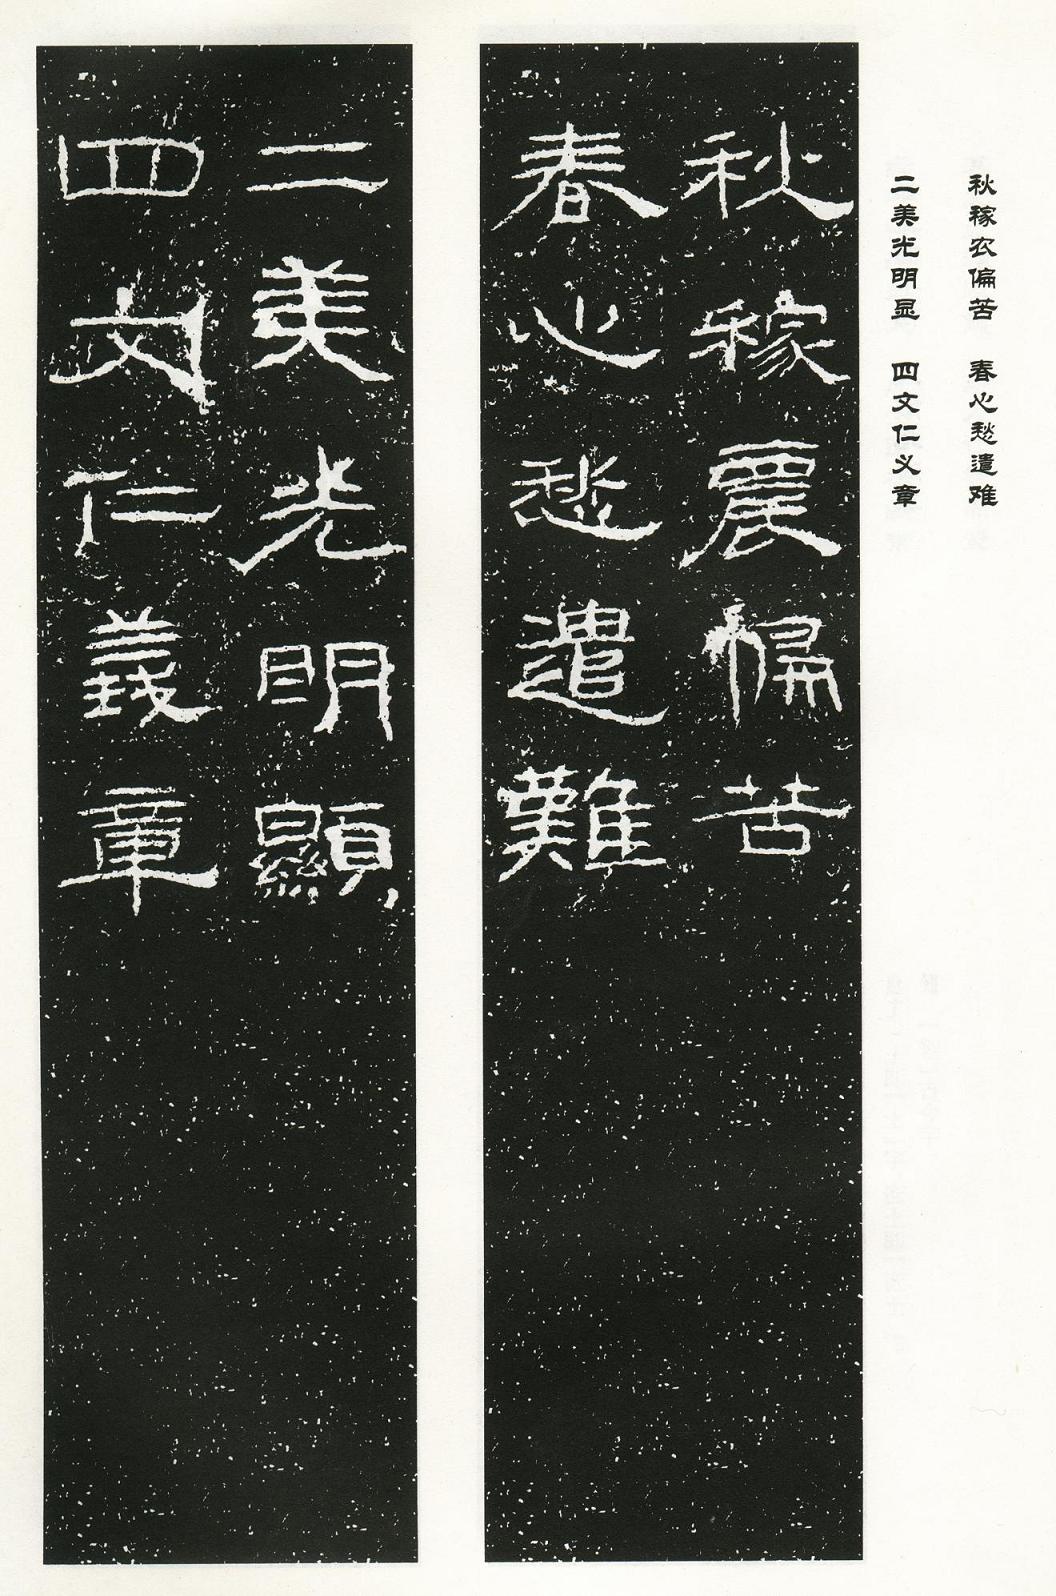 秋稼农偏苦　春心愁遣难
二美光明显　四文仁义章
秋稼農偏苦
春心愁遣難
二美光明顯
四文仁義章